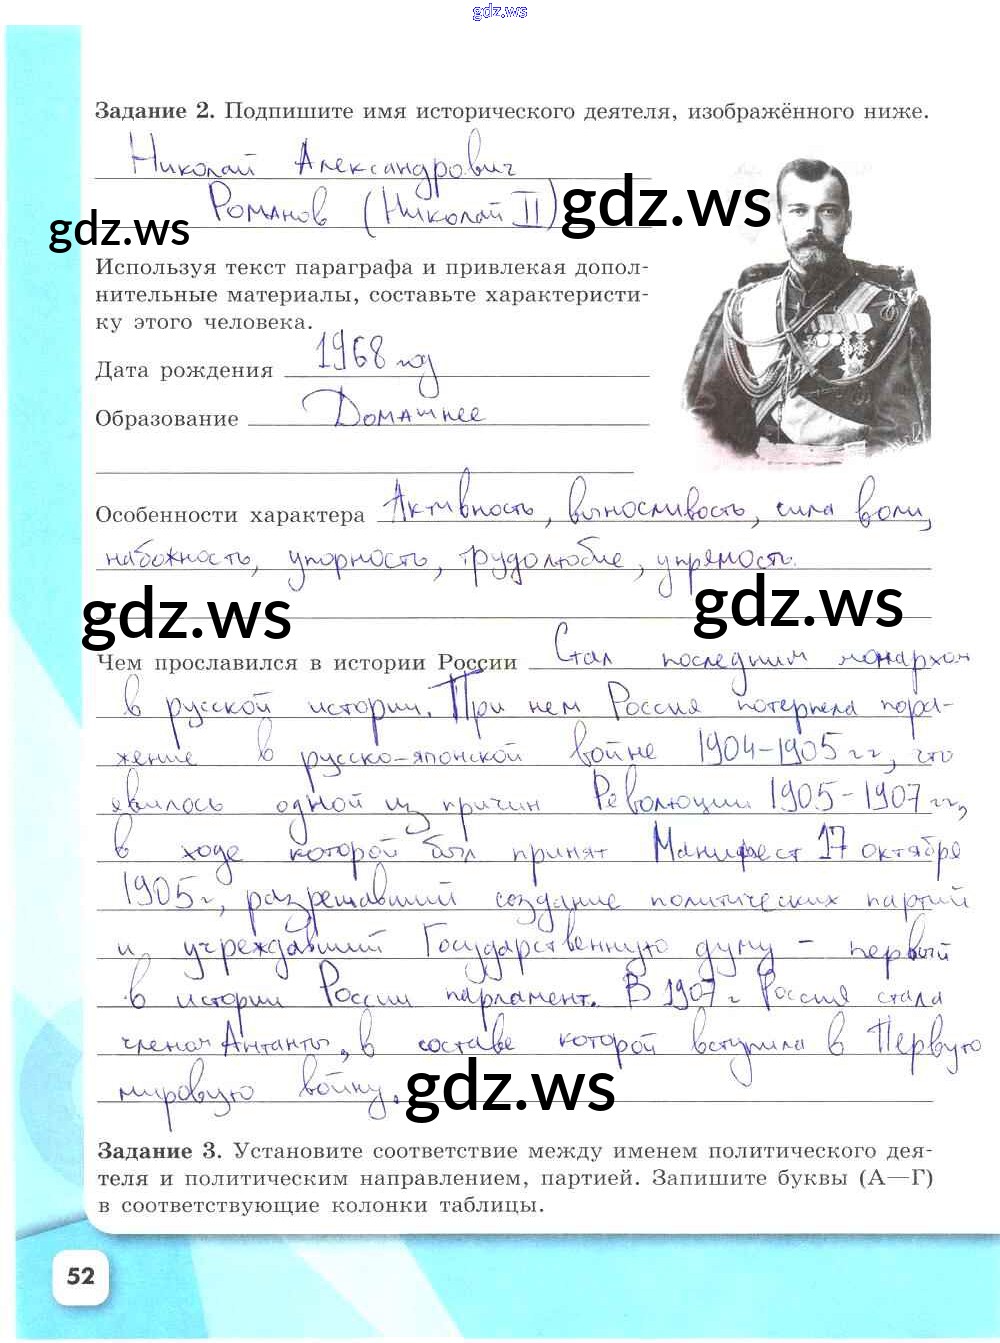 gdz.ws
Задание 2. Подпишите имя исторического деятеля, изображённого ниже.
Николай Александрович
Романов (Николай II)
gdz.ws
gdz.ws
Используя текст параграфа и привлекая допол-
нительные материалы, составьте характеристи-
ку этого человека.
Дата рождения 1968 год
Образование Домашнее
Особенности характера Активность, выносливость, сила воли,
набожность, упорность, трудолюбие, упрямость.
gdz.ws
gdz.ws
Чем прославился в истории России Стал последним монархом
в русской истории. При нем Россия потерпела пора-
жение в русско-японской войне 1904-1905 гг, что
явилось одной из причин Революции 1905-1907 гг,
в ходе которой был принят Манифест 17 октября
1905 г, разрешавший создание политических партий
и учреждавший Государственную думу - первый
в истории России парламент. В 1907 г Россия стала
членом Антанты, в составе которой вступила в Первую
мировую войну.
gdz.ws
Задание 3. Установите соответствие между именем политического дея-
теля и политическим направлением, партией. Запишите буквы (А—Г)
в соответствующие колонки таблицы.
52